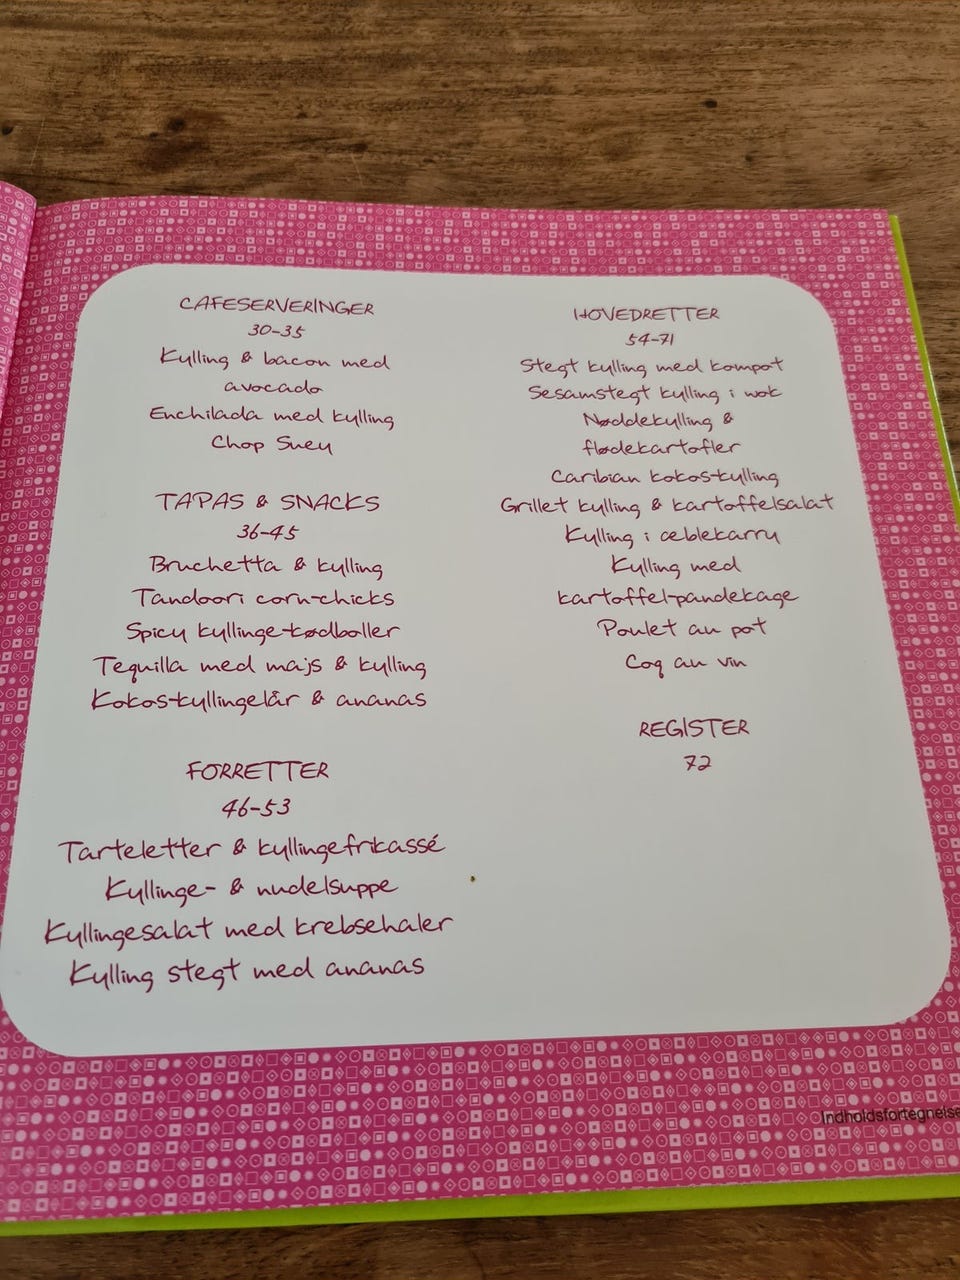 CAFESERVERINGER
30-35
Kylling & bacon med
avocado
Enchilada med kylling
Chop Suey
TAPAS & SNACKS
36-45
Bruchetta & kylling
Tandoori corn-chicks
Spicy kyllinge-kødboller
Tequilla med majs & kylling
Kokos-kyllingelår & ananas
FORRETTER
46-53
Tarteletter & kyllingefrikassé
Kyllinge- & nudelsuppe
Kyllingesalat med krebsehaler
Kylling stegt med ananas
HOVEDRETTER
54-71
Stegt kylling med kompot
Sesamstegt kylling i wok
Nøddekylling &
flødekartofler
Caribian kokos-kylling
Grillet kylling & kartoffelsalat
Kylling i æblekarry
Kylling med
kartoffel-pandekage
Poulet au pot
Coq au vin
REGISTER
72
Indholdsfortegnelse